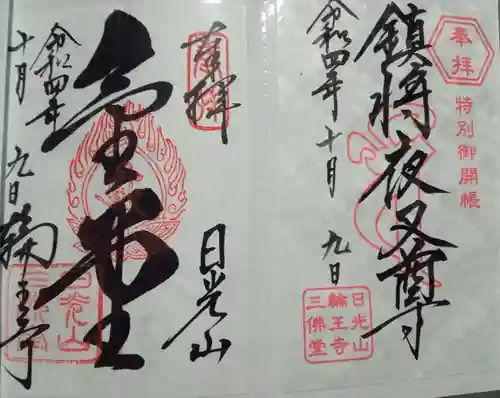 奉拝
特別御開帳
鎮将夜叉尊
令和四年十月九日
日光山
輪王寺
三佛堂
奉拝
日光山
金堂
令和四年
十月九日
輪王寺
日光山